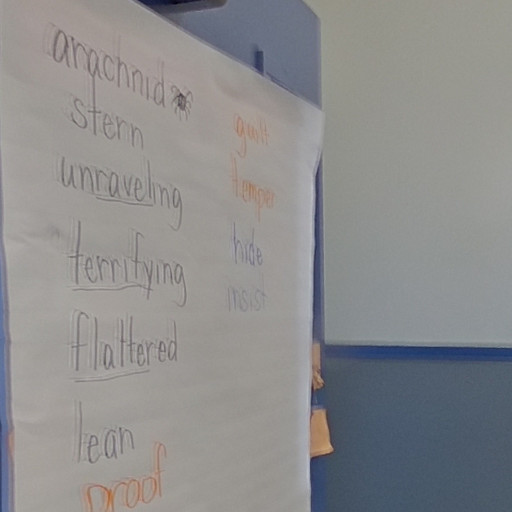 arachnid
stern
unraveling
terrifying
flattered
lean
proof
guilt
temper
hide
insist